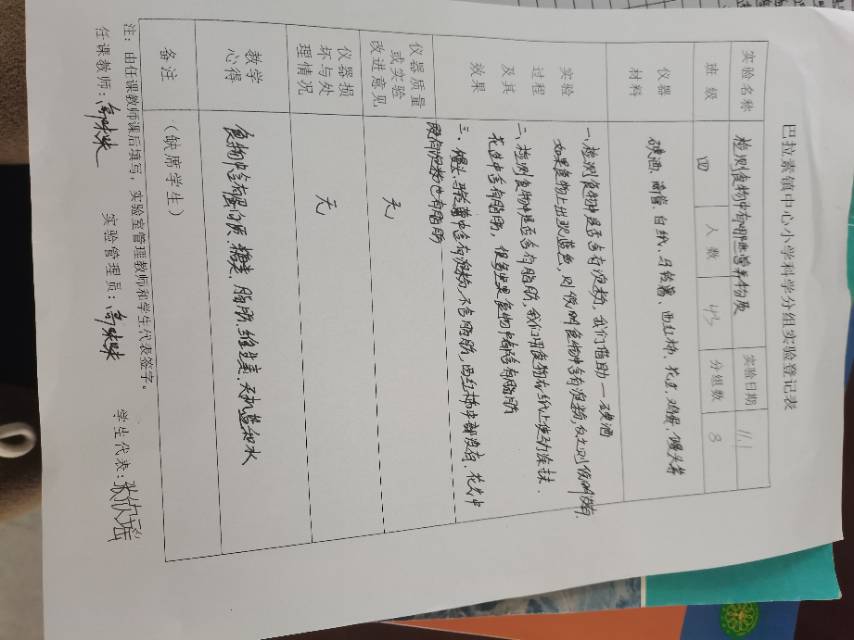 巴拉素镇中心小学科学分组实验登记表
实验名称 检测食物中有哪些营养物质 实验日期 11.1
班级 四 人数 43 分组数 8
仪器材料 碘酒、滴管、白纸、马铃薯、西红柿、花生、鸡蛋、馒头等
实验过程及其效果
一、检测食物中是否含有淀粉,我们借助一碘酒
如果食物上出现蓝色,则说明食物中含有淀粉,
二、检测食物中是否含有脂肪,我们用食物在纸上使劲涂抹.
花生中含有脂肪,
三、馒头、马铃薯中含有淀粉,不含脂肪,西红柿中都没有,花生中
既有淀粉也有脂肪
仪器质量或实验改进意见 无
仪器损坏与处理情况 无
教学心得 食物中含有蛋白质、糖类、脂肪、维生素、无机盐和水
备注 (缺席学生)
注:由任课教师课后填写,实验室管理教师和学生代表签字。
任课教师: 实验管理员: 学生代表: